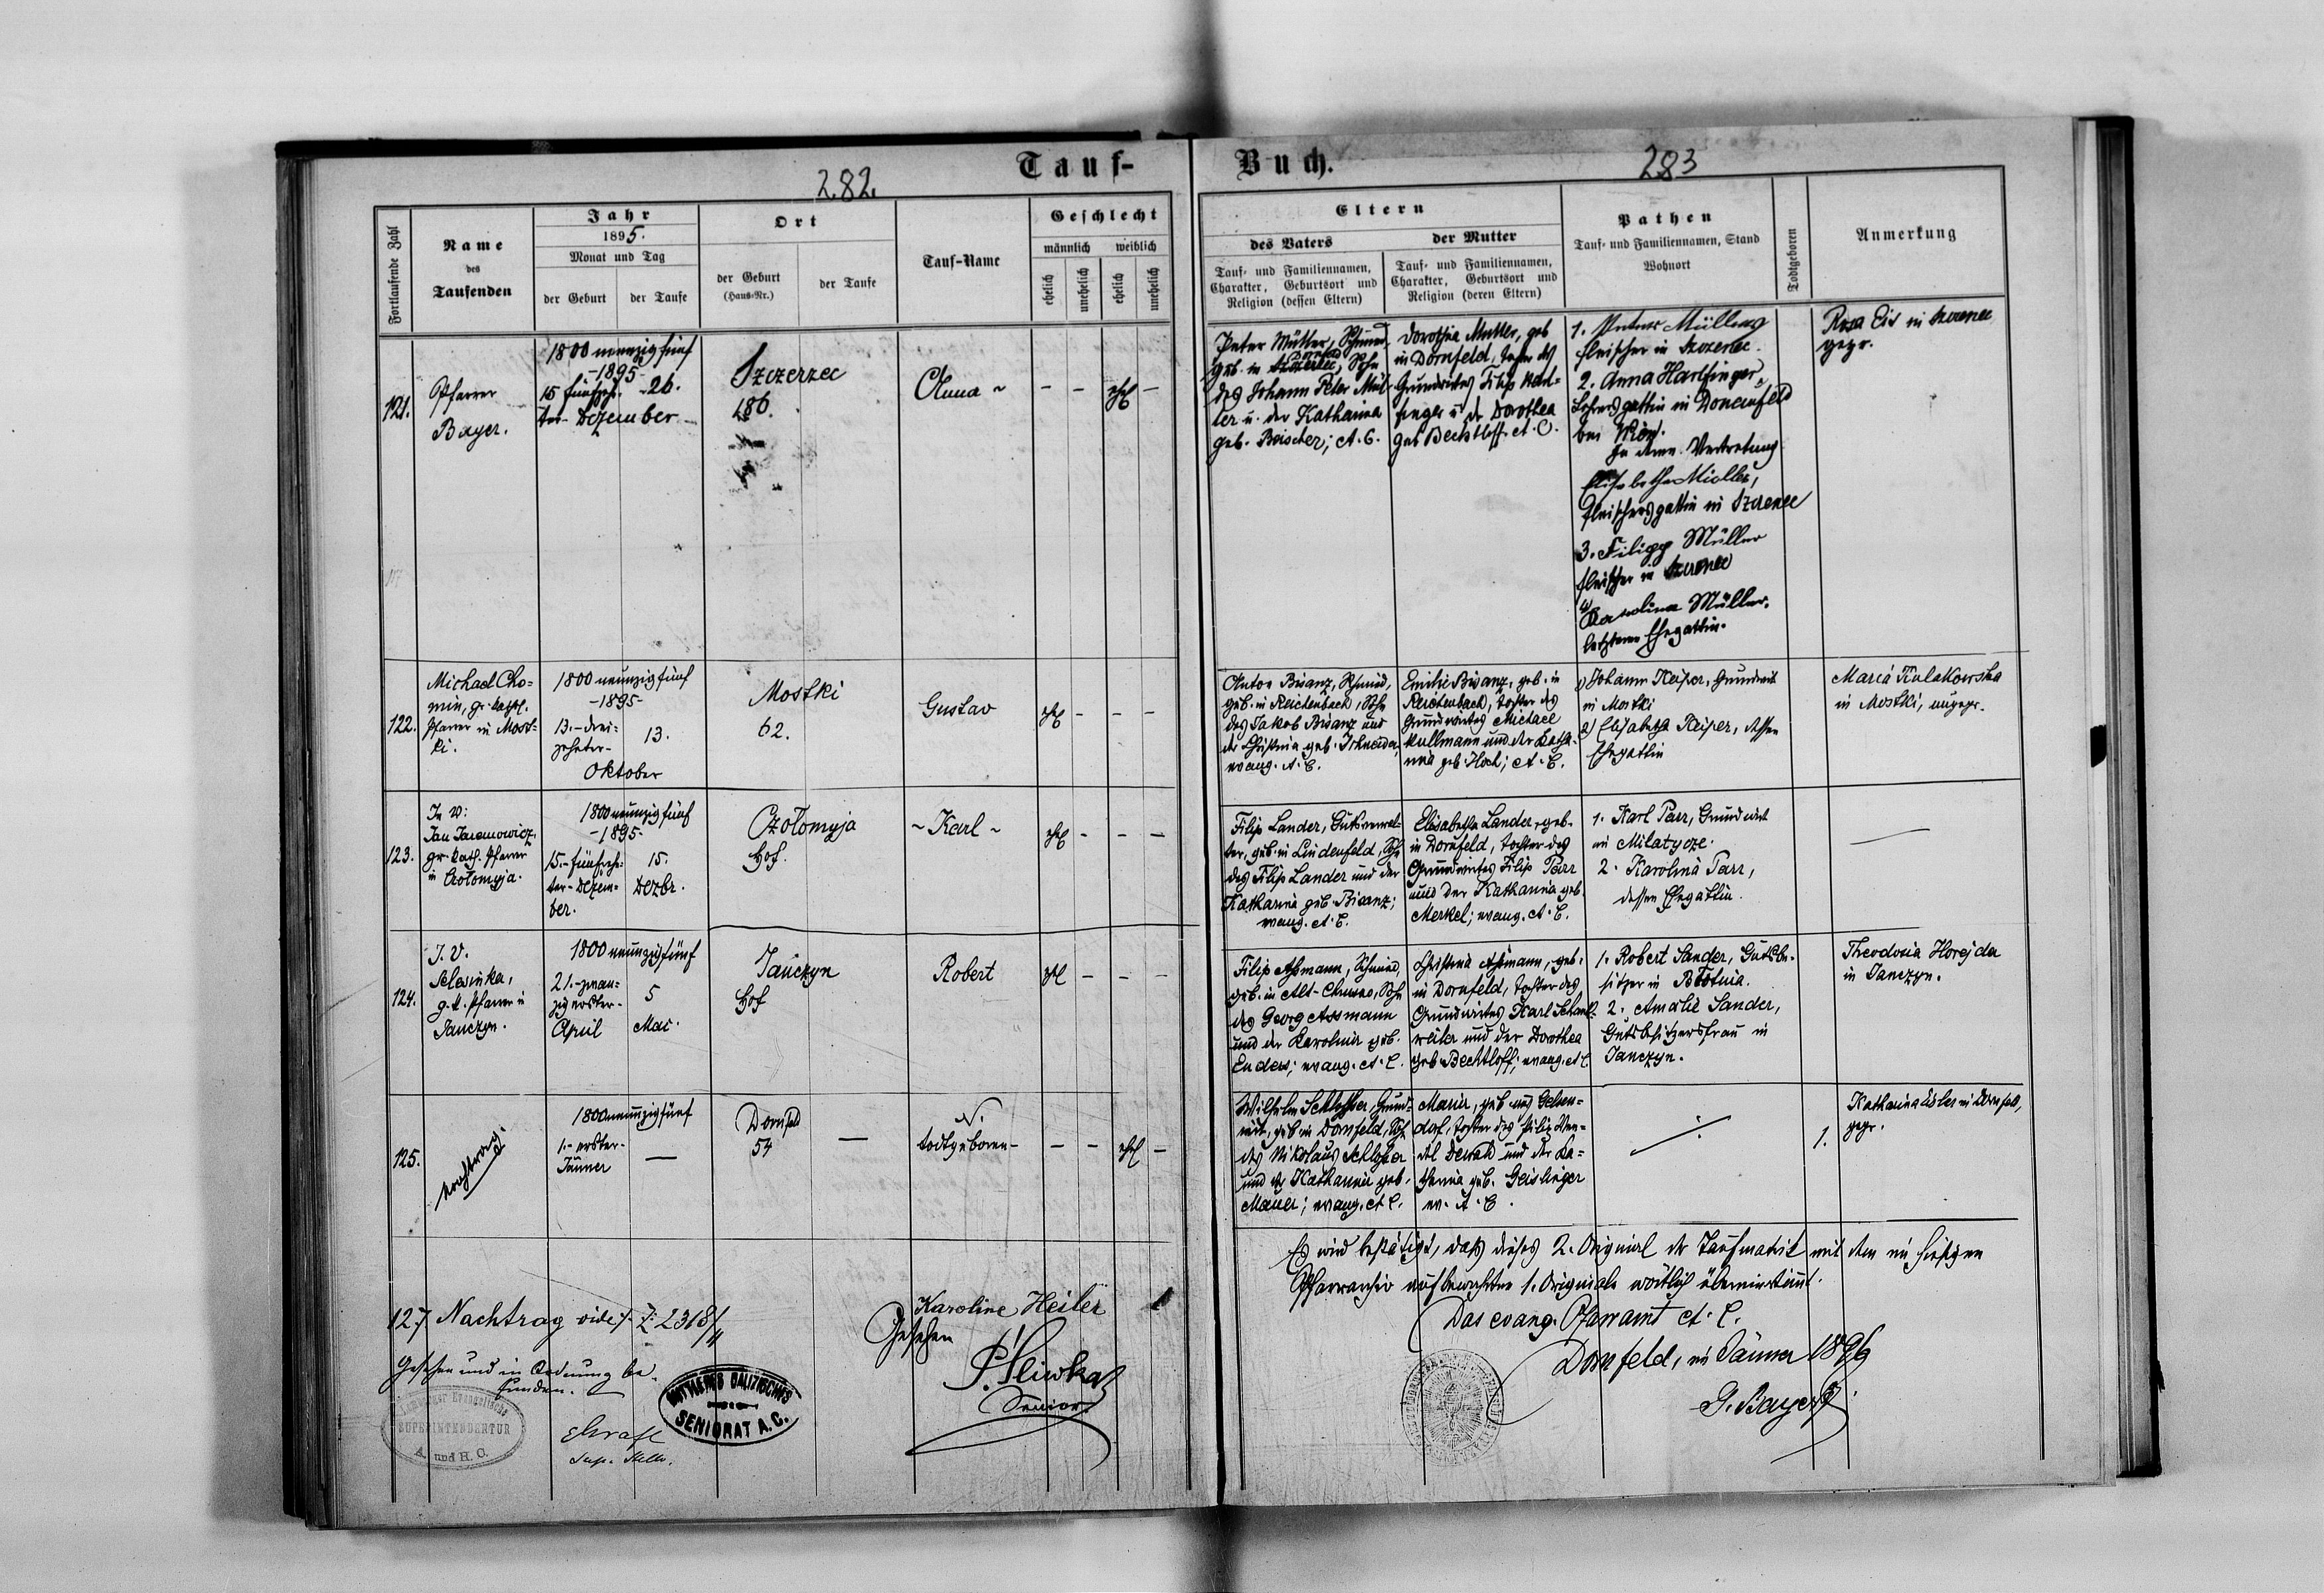 Tauf-
Buch.
282.
283
Fortlaufende Zahl
Name
des
Taufenden
Jahr
1895.
Monat und Tag
der Geburt
der Taufe
Ort
der Geburt
(Haus-Nr.)
der Taufe
Tauf-Name
Geschlecht
männlich
weiblich
ehelich
unehelich
ehelich
unehelich
Eltern
des Vaters
der Mutter
Tauf- und Familiennamen,
Charakter, Geburtsort und
Religion (dessen Eltern)
Tauf- und Familiennamen,
Charakter, Geburtsort und
Religion (deren Eltern)
Pathen
Tauf- und Familiennamen, Stand
Wohnort
Todtgeboren
Anmerkung
121.
Pfarrer
Bayer.
1800 neunzig fünf
-1895-
15 fünfzehn- 26.
ter- Dezember
Szczerzec
186.
Anna
ehel
Peter Müller, Schmied
geb. in Dornfeld, Sohn
des Johann Peter Mül-
ler u. der Katharina
geb. ; A. C.
Dorothea Müller, geb
in Dornfeld, Tochter des
Grundwirtes Filip
u. der Dorothea
geb Bechtloff. A. C.
1. Peter Müller
Fleischer in Szczerzec.
2. Anna Hartfinger,
Lehrersgattin in
bei
In deren Vertretung
Elisabetha Müller,
Fleischersgattin in Szczerzec
3. Filipp Müller
Fleischer in Szczerzec
4) Karolina Müller,
letzteren Ehegattin.
Rosa Eis in Szczerzec
gepr.
122.
Michael Cho-
min, gr. kathl.
Pfarrer in Most-
ki.
1800 neunzig fünf
-1895-
13.- drei-
zehnter-
13.
Oktober
Mostki
62.
Gustav
ehel - - -
Anton Bisanz, Schmied,
geb. in Reichenbach, Sohn
des Jakob Bisanz und
der Christina geb. Schneider,
evang. A. C.
Emilie Bisanz, geb. in
Reichenbach, Tochter des
Grundwirtes Michael
Kullmann und der Katha-
rina geb. Hoch; A. C.
1) Johann Keiper, Grundwirt
in Mostki
2) Elisabeth Keiper, dessen
Ehegattin
Maria Kulakowska
in Mostki, ungepr.
123.
In v:
Jan Jaremowicz,
gr. kath. Pfarrer
in Czołomyja.
1800 neunzig fünf
-1895-
15.- fünfzehn-
ter- Dezem-
ber.
15.
Dezbr.
Czołomyja
Hof.
- Karl -
ehel - - -
Filip Lander, Gutsverwal-
ter, geb. in Lindenfeld, Sohn
des Filip Lander und der
Katharina geb. Bisanz;
evang. A. C.
Elisabetha Lander, geb.
in Dornfeld, Tochter des
Grundwirtes Filip Parr
und der Katharina geb.
Merkel; evang. A. C.
1. Karl Parr, Grundwirt
in Milatycze.
2. Karolina Parr,
dessen Ehegattin.
124.
I. V.
Selewinka,
g. k. Pfarrer in
Janczyn.
1800 neunzig fünf
21.- zwan-
zig erster-
April
5
Mai.
Janczyn
Hof
Robert
ehel - - -
Filip Aßmann, Schmied
geb. in Alt-Chrusno, Sohn
des Georg Assmann
und der Karolina geb.
Enders; evang. A. C.
Christina Aßmann, geb.
in Dornfeld, Tochter des
Grundwirtes Karl Schank-
weiler und der Dorothea
geb Bechtloff; evang. A. C.
1. Robert Sander, Gutsbe-
sitzer in Błotnia.
2. Amalie Sander,
Gutsbesitzersfrau in
Janczyn.
Theodosia Horejda
in Janczyn.
125.
Nachtrag.
1800 neunzig fünf
1.- erster-
Jänner
Dornfeld
54
N.
todtgeboren-
- - ehel -
Wilhelm Schlosser, Grund-
wirt, geb in Dornfeld, Sohn
des Nikolaus Schlosser
und der Katharina geb.
Mauer; evang. A. C.
Maria, geb aus Gelsen-
dorf, Tochter des Filip Wen-
del Dewald und der Ka-
tharina geb. Geislinger
ev. A. C.
1.
Katharina Eisler in Dornfeld,
gepr.
127 Nachtrag vide Z: 2318/
Karoline Heiler
Gesehen und in Ordnung be-
funden.
Gesehen
P. Sliwka
Senior
Evangelische
SUPERINTENDENTUR
A. und H. C.
MITTLERES GALIZISCHES
SENIORAT A.C.
Es wird bestätigt, daß dieses 2. Original der Taufmatrik mit dem im hiesigen
Pfarrarchiv aufbewahrten 1. Originale wörtlich übereinstimmt.
Das evang. Pfarramt A. C.
Dornfeld, im Jänner 1896
G. Bayer